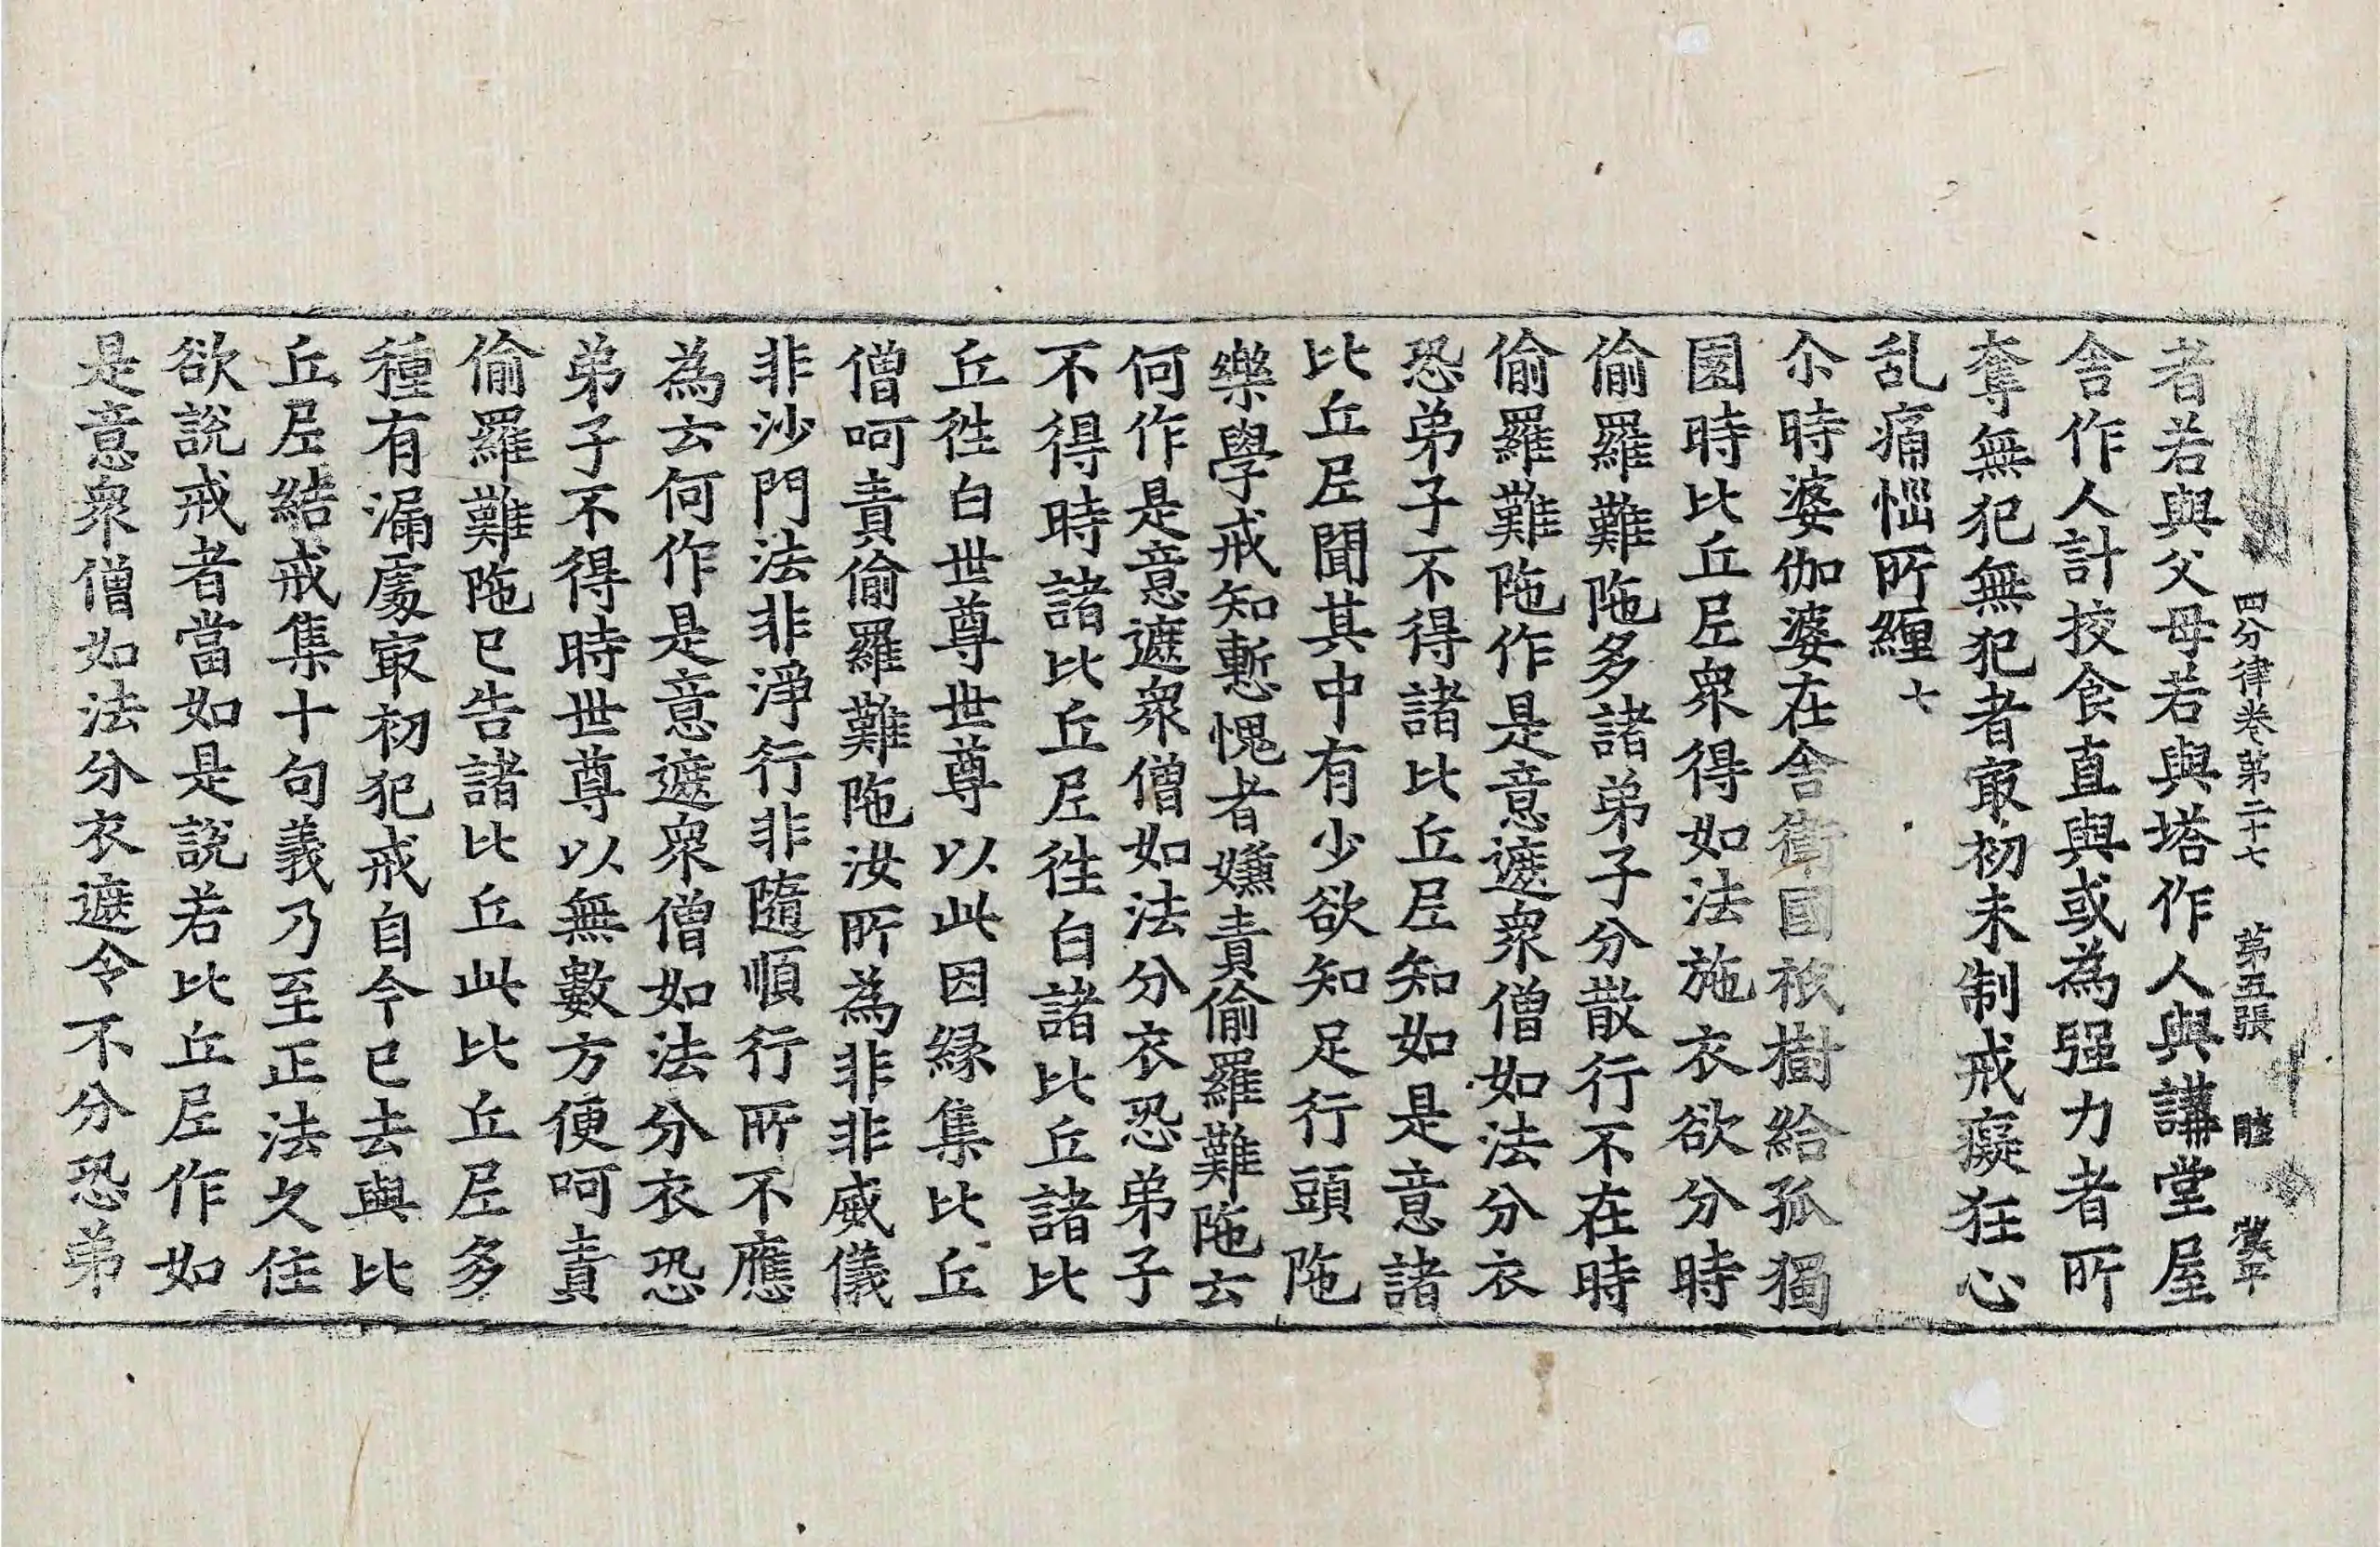 四分律卷第二十七 第五張 睦
者若與父母若與塔作人與講堂屋
舎作人計挍食直與或為强力者所
奪無犯無犯者㝡初未制戒癡狂心
乱痛惱所纏 七
尒時婆伽婆在舎衛國祇樹給孤獨
園時比丘尼衆得如法施衣欲分時
偷羅難陁多諸弟子分散行不在時
偷羅難陁作是意遮衆僧如法分衣
恐弟子不得諸比丘尼知如是意諸
比丘尼聞其中有少欲知足行頭陁
樂學戒知慙愧者嫌責偷羅難陁云
何作是意遮衆僧如法分衣恐弟子
不得時諸比丘尼徃白諸比丘諸比
丘徃白世尊世尊以此因縁集比丘
僧呵責偷羅難陁汝所為非非威儀
非沙門法非淨行非隨順行所不應
為云何作是意遮衆僧如法分衣恐
弟子不得時世尊以無數方便呵責
偷羅難陁已告諸比丘此比丘尼多
種有漏處㝡初犯戒自今已去與比
丘尼結戒集十句義乃至正法久住
欲說戒者當如是說若比丘尼作如
是意衆僧如法分衣遮令不分恐弟